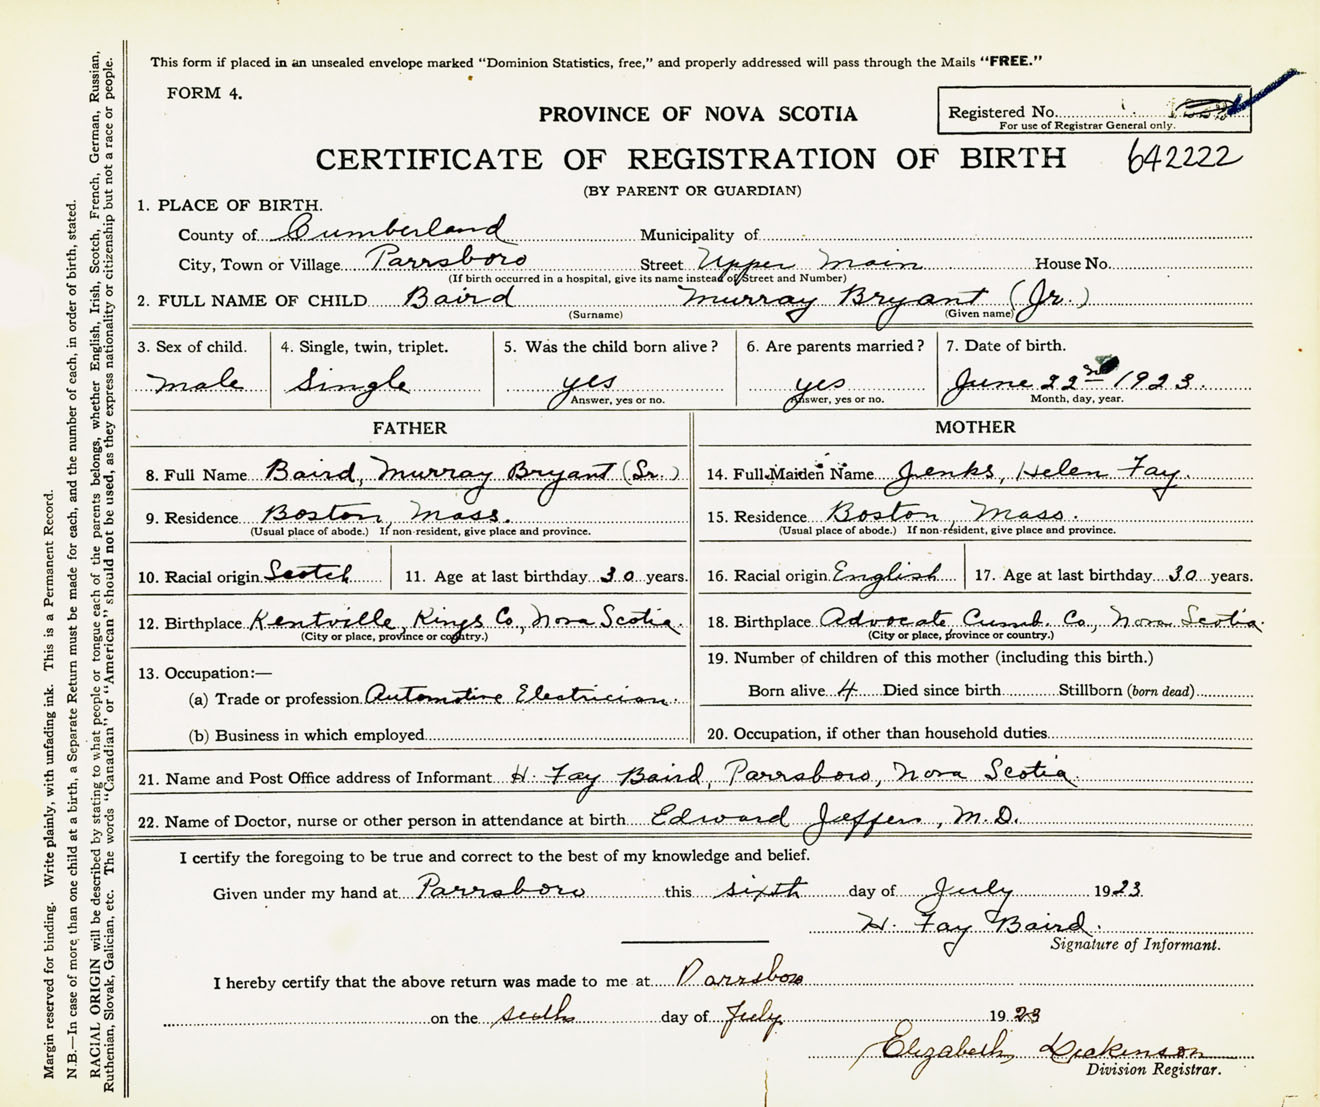 This form if placed in an unsealed envelope marked "Dominion Statistics, free," and properly addressed will pass through the Mails "FREE."
FORM 4.
PROVINCE OF NOVA SCOTIA
Registered No.
For use of Registrar General only.
CERTIFICATE OF REGISTRATION OF BIRTH
642222
(BY PARENT OR GUARDIAN)
1. PLACE OF BIRTH.
County of Cumberland Municipality of
City, Town or Village Parrsboro Street Upper Main House No.
(If birth occurred in a hospital, give its name instead of Street and Number)
2. FULL NAME OF CHILD Baird Murray Bryant (Jr.)
(Surname) (Given name)
3. Sex of child. 4. Single, twin, triplet. 5. Was the child born alive? 6. Are parents married? 7. Date of birth.
Male Single yes yes June 22nd 1923.
Answer, yes or no. Answer, yes or no. Month, day, year.
FATHER MOTHER
8. Full Name Baird, Murray Bryant (Sr.) 14. Full Maiden Name Jenks, Helen Fay.
9. Residence Boston, Mass. 15. Residence Boston Mass.
(Usual place of abode.) If non-resident, give place and province. (Usual place of abode.) If non-resident, give place and province.
10. Racial origin Scotch 11. Age at last birthday 30 years. 16. Racial origin English 17. Age at last birthday 30 years.
12. Birthplace Kentville, Kings Co, Nova Scotia. 18. Birthplace Advocate Cumb. Co., Nova Scotia.
(City or place, province or country.) (City or place, province or country.)
13. Occupation:— 19. Number of children of this mother (including this birth.)
(a) Trade or profession Automotive Electrician. Born alive 4 Died since birth Stillborn (born dead)
(b) Business in which employed 20. Occupation, if other than household duties
21. Name and Post Office address of Informant H. Fay Baird, Parrsboro, Nova Scotia
22. Name of Doctor, nurse or other person in attendance at birth Edward Jeffers, M.D.
I certify the foregoing to be true and correct to the best of my knowledge and belief.
Given under my hand at Parrsboro this sixth day of July 1923.
H. Fay Baird.
Signature of Informant.
I hereby certify that the above return was made to me at Parrsboro
on the sixth day of July 1923
Elizabeth Dickinson
Division Registrar.
Margin reserved for binding. Write plainly, with unfading ink. This is a Permanent Record.
N.B.—In case of more than one child at a birth, a Separate Return must be made for each, and the number of each, in order of birth, stated.
RACIAL ORIGIN will be described by stating to what people or tongue each of the parents belongs, whether English, Irish, Scotch, French, German, Russian,
Ruthenian, Slovak, Galician, etc. The words "Canadian" or "American" should not be used, as they express nationality or citizenship but not a race or people.